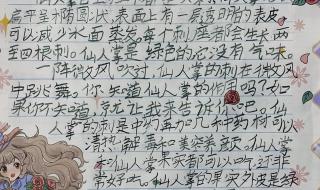 扁平呈卡随圆状，表面上有一层透明脂的表皮，
可以减少水面蒸发，每个刺座都会生长两
至四根刺。仙人掌是绿色的它没有气味。
一阵微风吹过，仙人掌的刺在微风
中跳舞。你知道仙人掌的作用吗？如
果你不知道，就让我来告诉你吧。仙
人掌的刺是中药再加几种药材可以
清热解毒和美容养颜。仙人掌
和仙人掌果实都可以吃还非
常好吃。仙人掌的果实外皮是绿